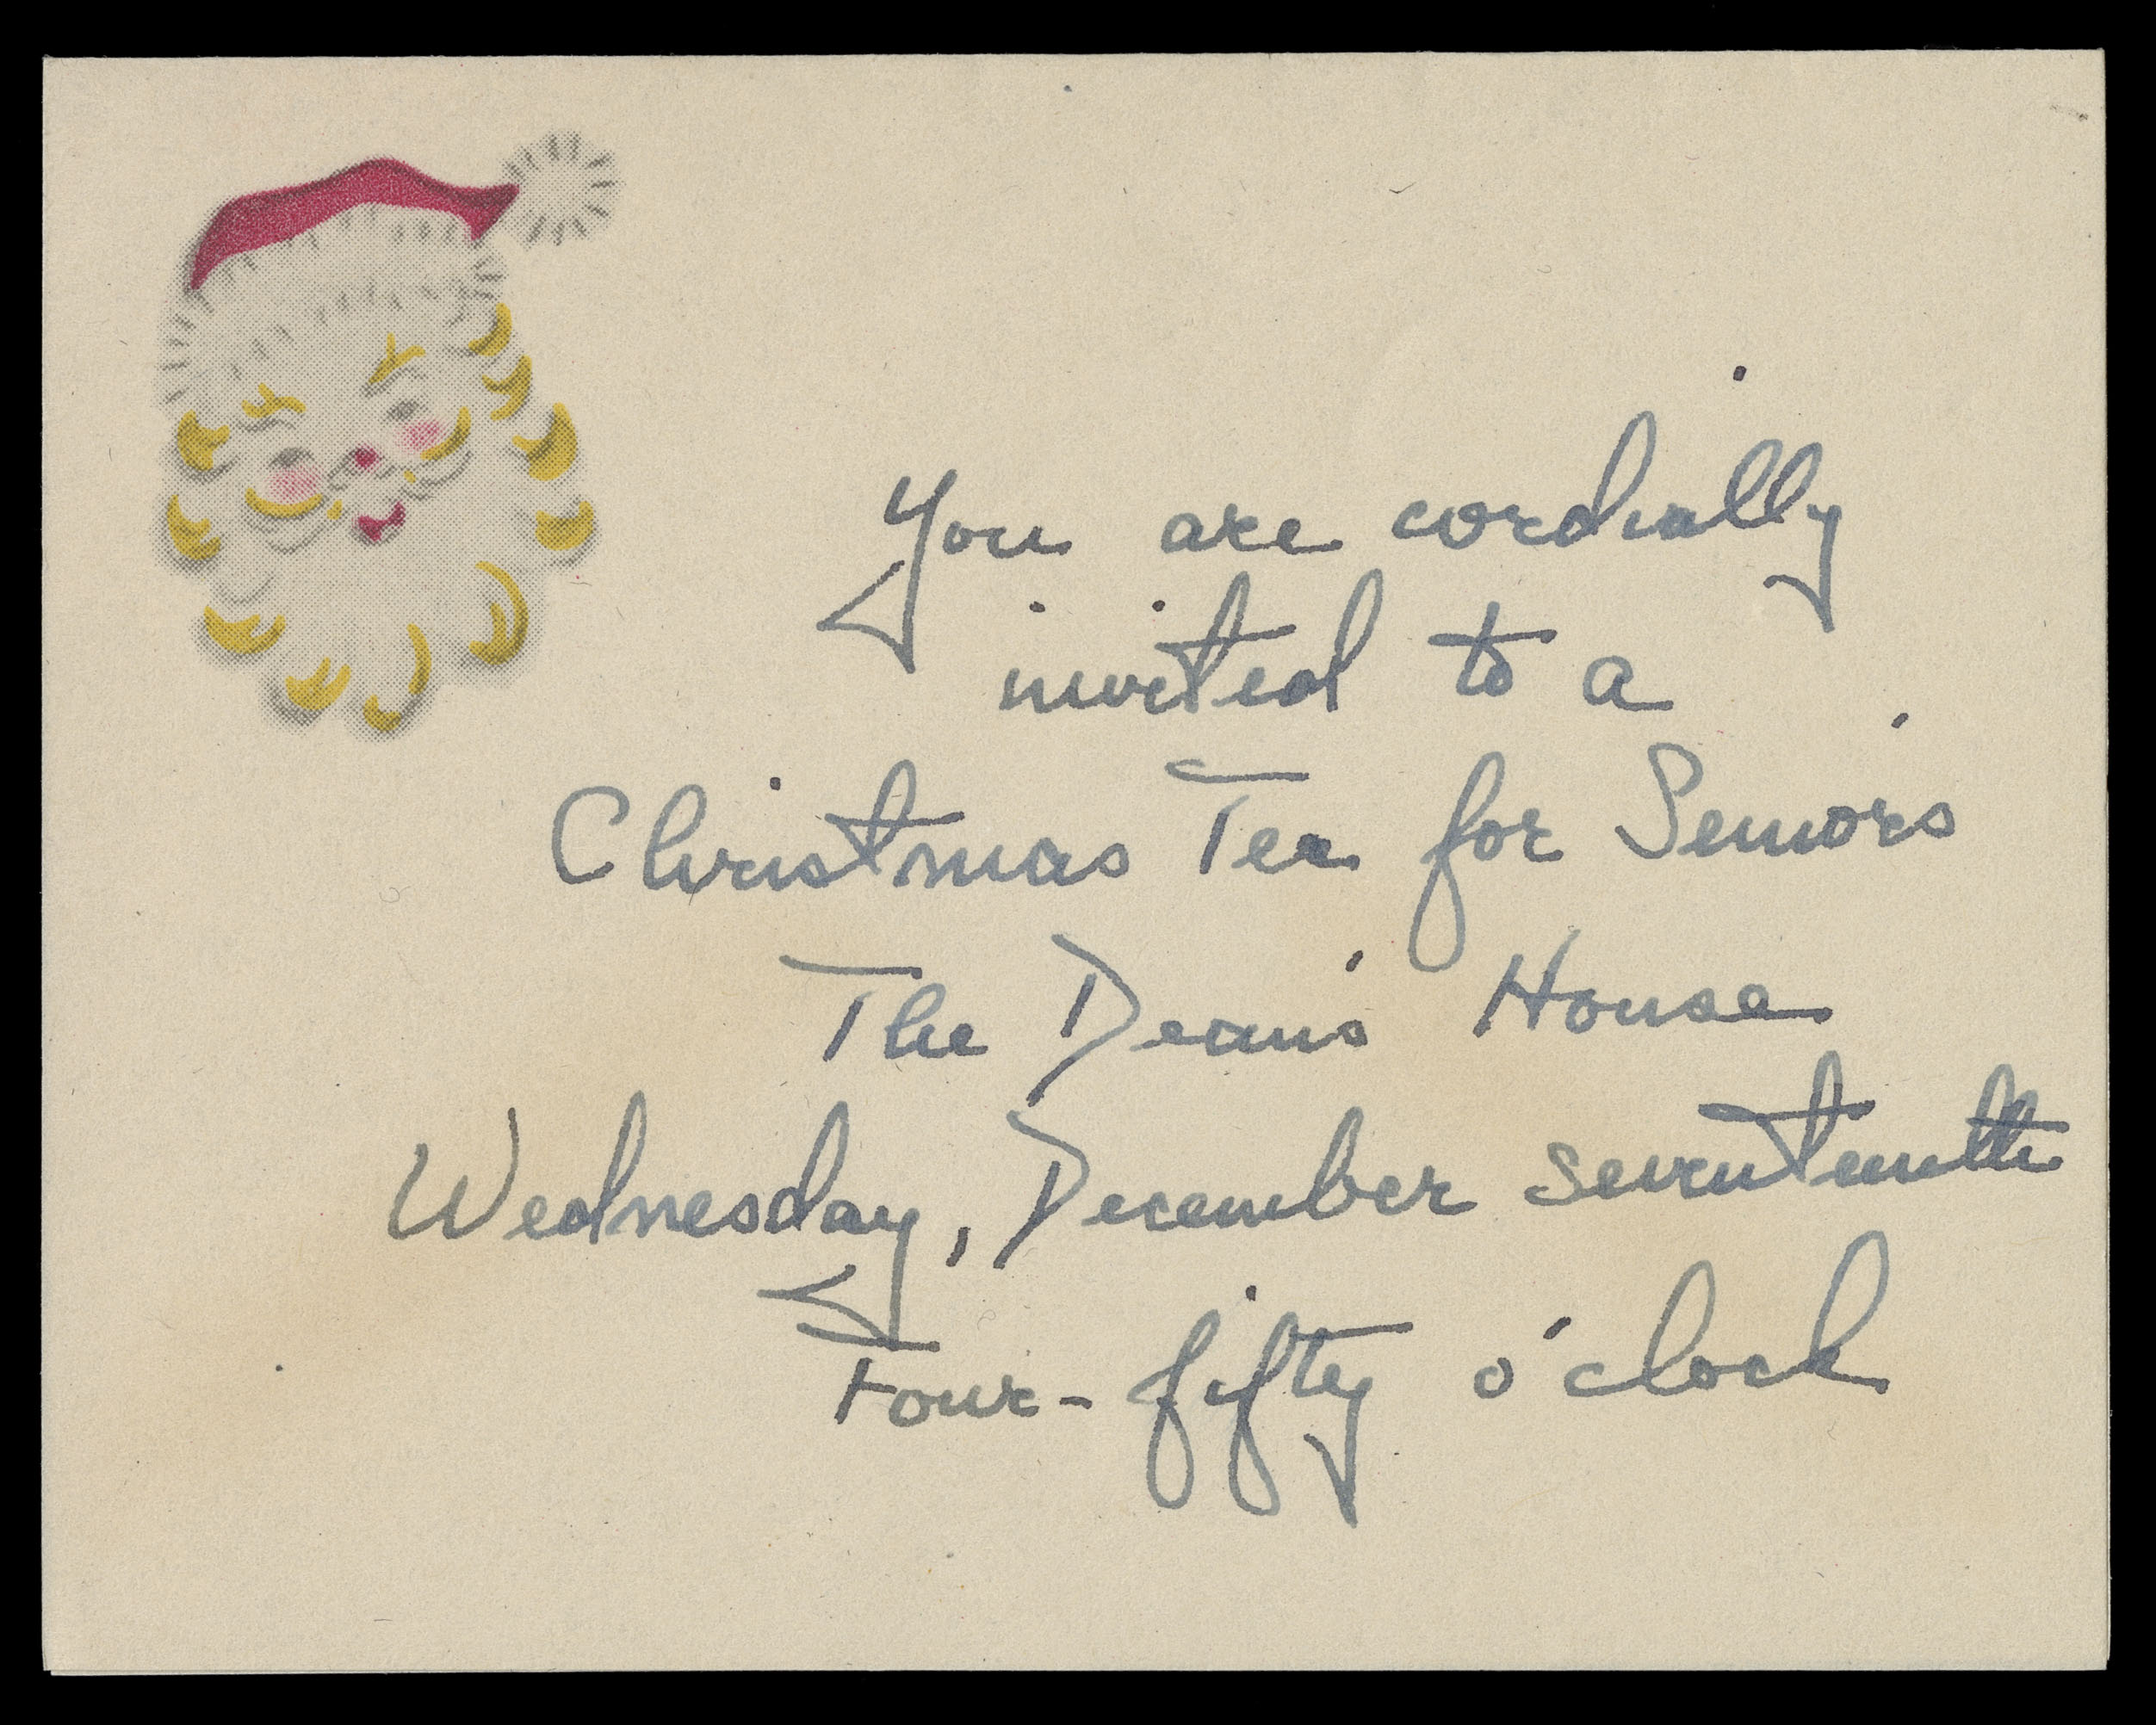 You are cordially
invited to a
Christmas Tea for Seniors
The Dean's House
Wednesday, December seventeenth
Four-fifty o'clock